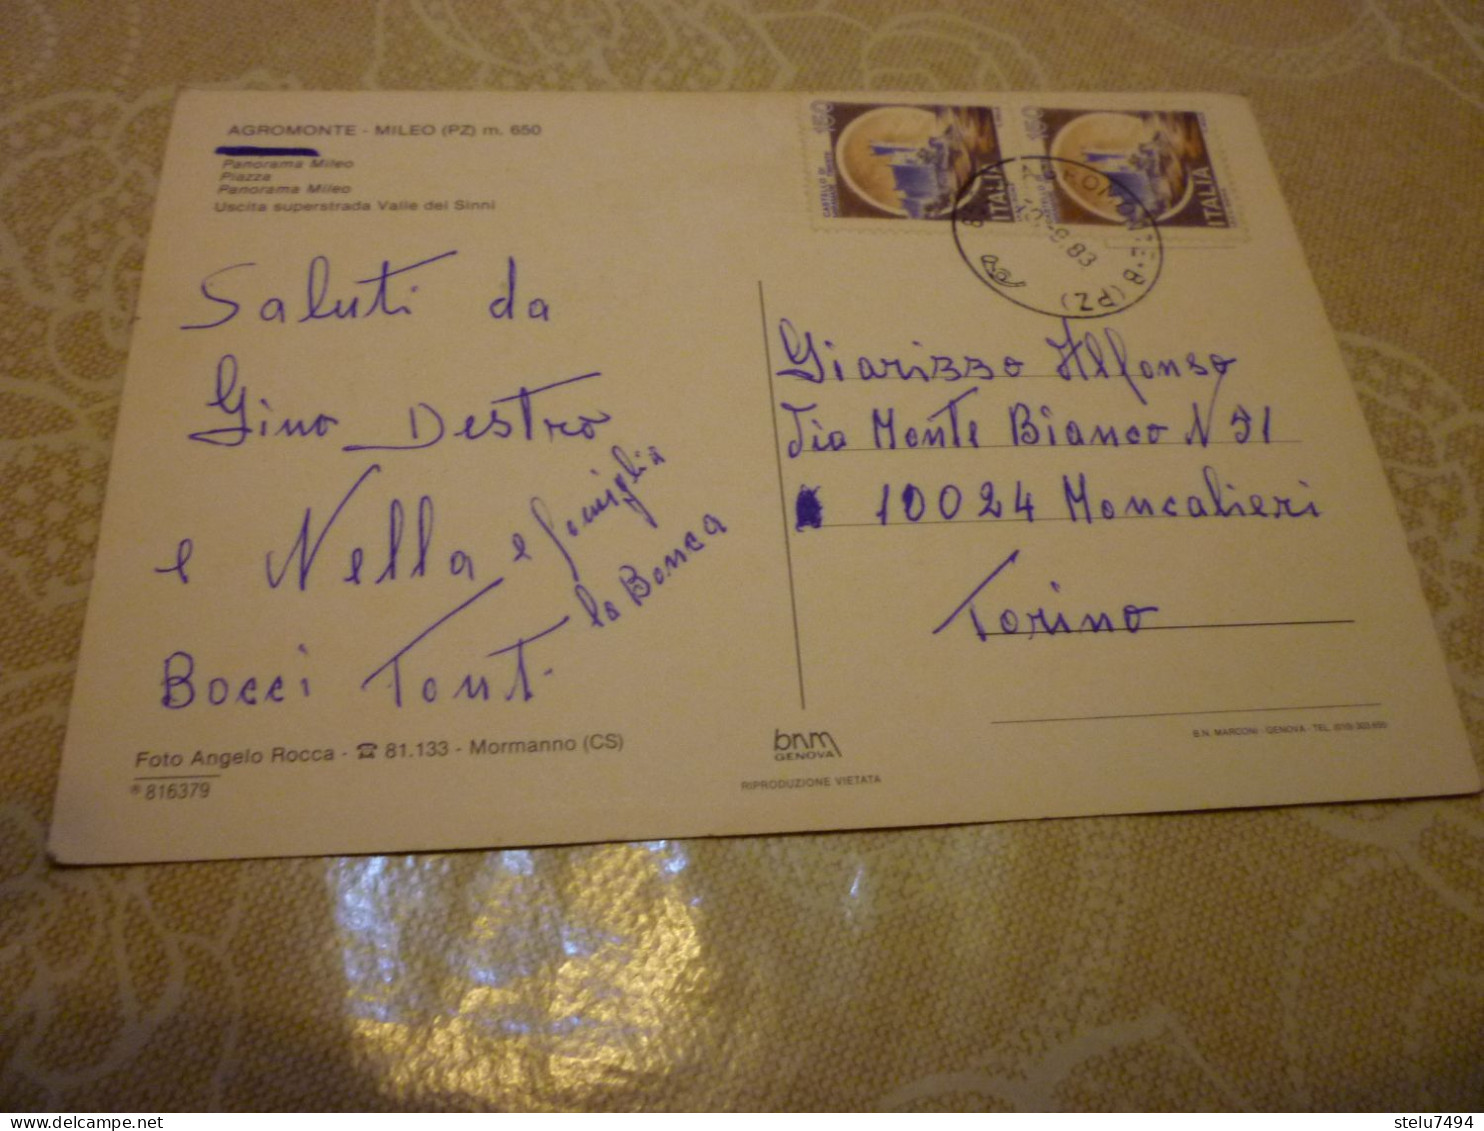 AGROMONTE - MILEO (PZ) m. 650
Panorama Mileo
Piazza
Panorama Mileo
Uscita superstrada Valle del Sinni
Saluti da
Gino Destro
e Nella e famiglia
la Bonca
Bocci Tont.
Foto Angelo Rocca - ☎ 81.133 - Mormanno (CS)
* 816379
150
CASTELLO DI
ITALIA
150
ITALIA
83
(PZ)
Giarizzo Alfonso
Via Monte Bianco N 21
10024 Moncalieri
Torino
bnm
GENOVA
RIPRODUZIONE VIETATA
B.N. MARCONI - GENOVA - TEL.
stelu7494